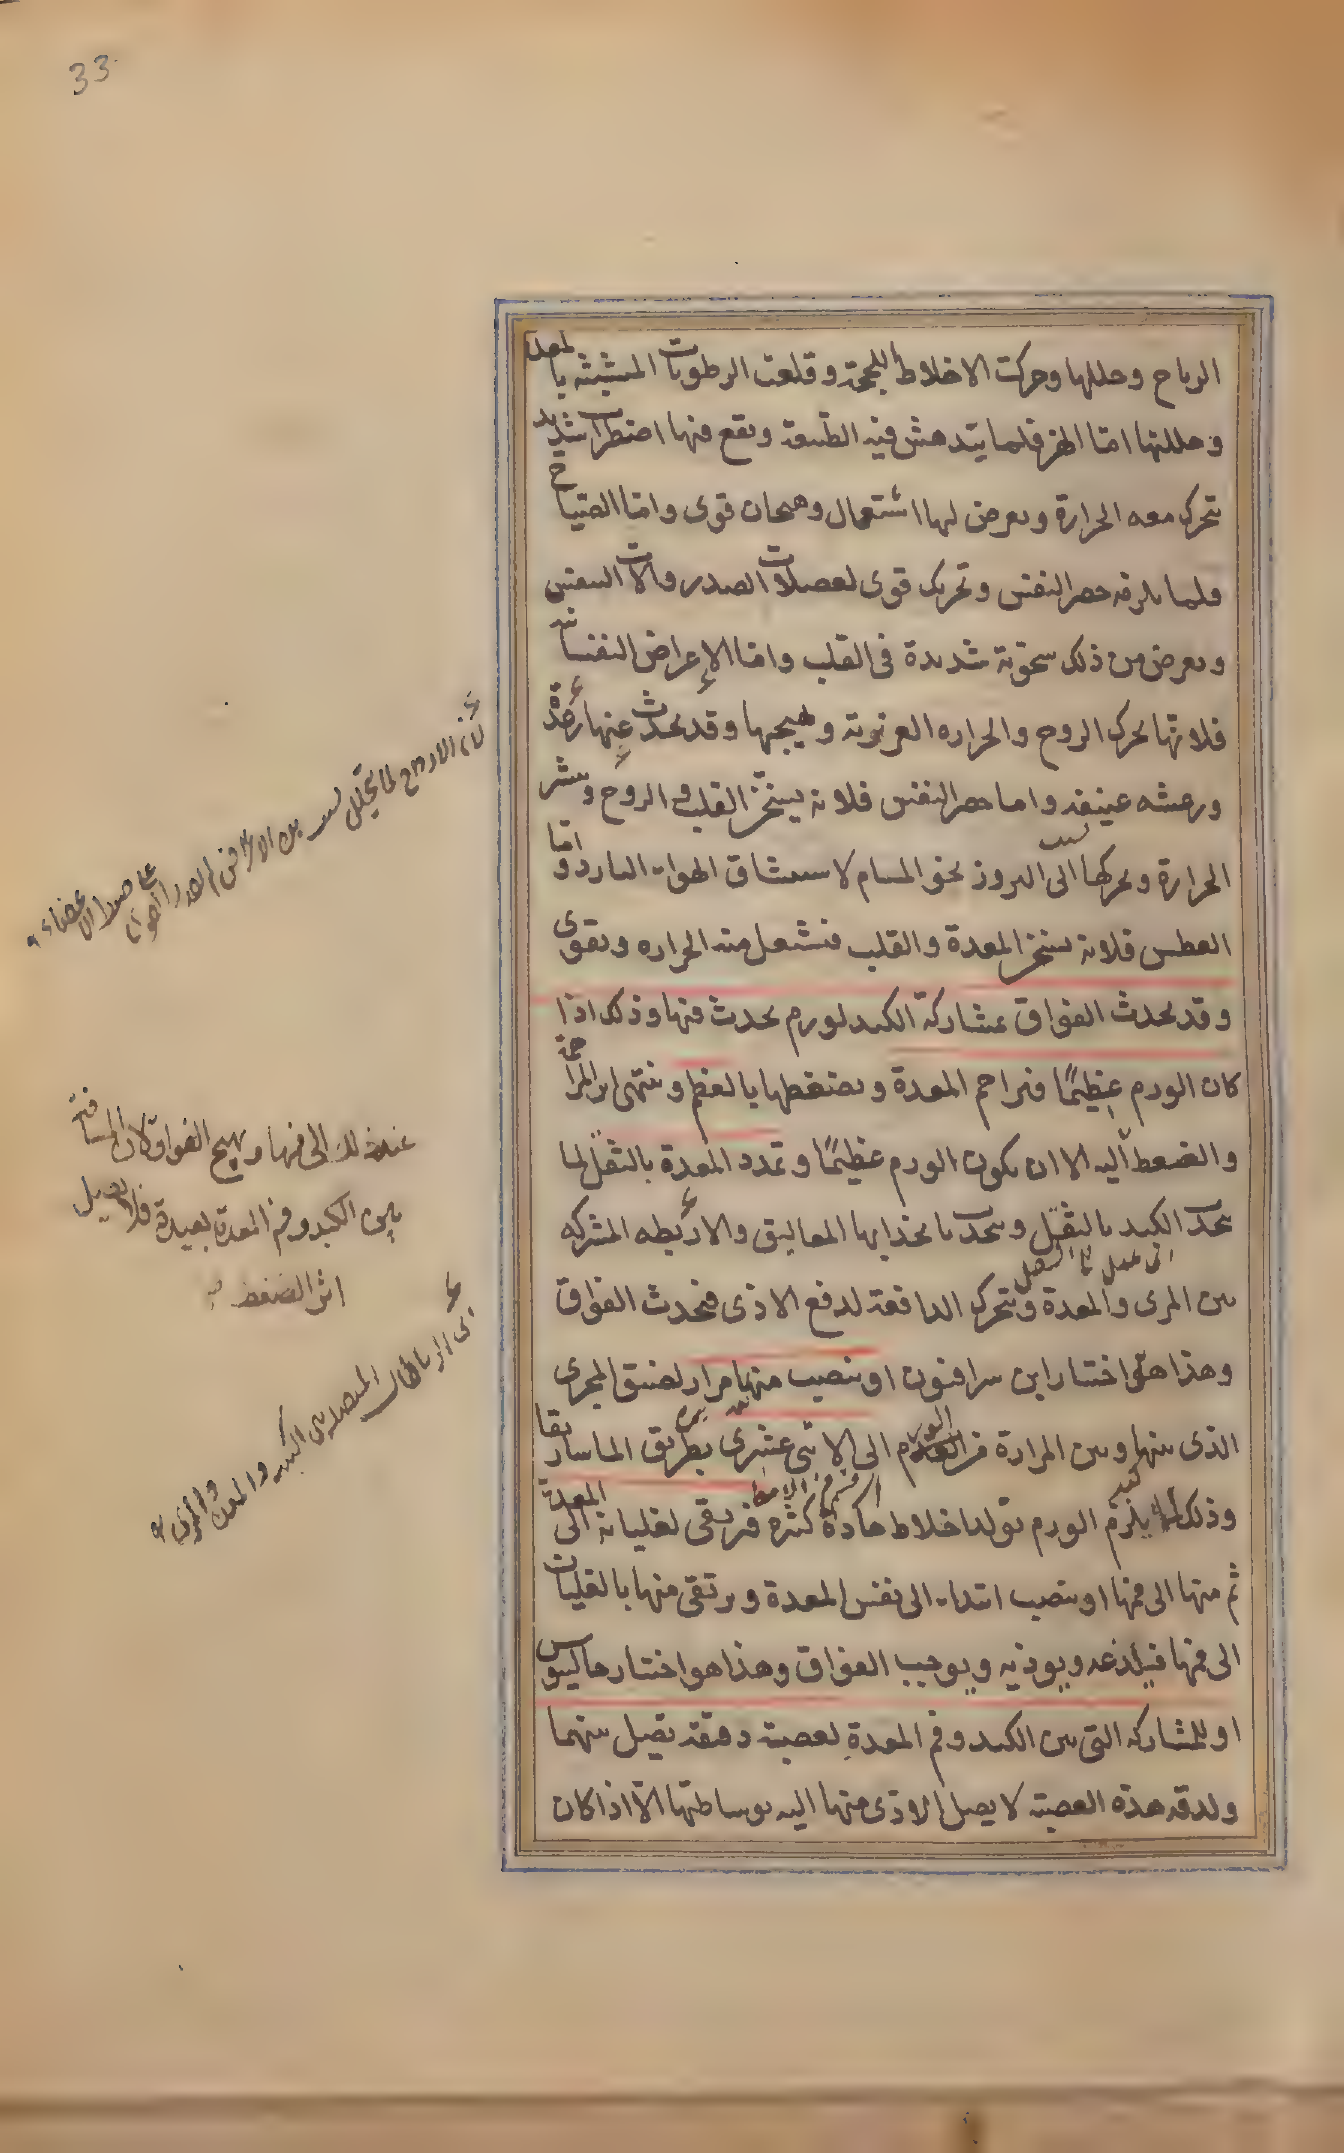 33
الرياح وحللها وحركت الاخلاط اللحجة وقلعت الرطوبات المتشبثة بالمعدة
وحللتها اما الهز فلما يندهش فيه الطبيعة ويقع فيها اضطراب شديد
تتحرك معه الحرارة ويعرض لها اشتعال وهيجان قوى واما الصياح
فلما يلزمه حصر النفس وتحريك قوى لعضلات الصدر والات التنفس
ويعرض من ذلك سخونة شديدة فى القلب واما الاعراض النفسانية
فلانها تحرك الروح والحراره الغريزية وتهيجها وقد يحدث عنها رعدة
ورعشه عنيفه واما حصر النفس فلانه يسخن القلب والروح وينشر
الحرارة ويحركها الى البروز نحو المسام لاستنشاق الهواء البارد واما
العطس فلانه يسخن المعدة والقلب فتشتعل منه الحراره وتقوى
وقد يحدث الفواق بمشاركة الكبد لورم يحدث فيها وذلك اذا
كان الورم عظيمًا فيزاحم المعدة ويضغطها بالعظم وينتهى اثر المزاحمة
والضغط اليه الا ان يكون الورم عظيمًا وتمدد المعدة بالثقل لما
تنجذب الكبد بالثقل وينجذب بانجذابها المعاليق والاربطه المشتركه
بين المرى والمعدة وتتحرك الدافعة لدفع الاذى فيحدث الفواق
وهذا هو اختيار ابن سرافيون او ينصب منها مرار لضيق المجرى
الذى بينها وبين المرارة من الورم الى الاثنى عشرى بطريق الماساريقا
وذلك يلزم الورم تولد اخلاط حادة كثيره فيرتقى لغليانه الى المعدة
ثم منها الى فمها او ينصب ابتداء الى نفس المعدة ويرتقى منها بالغليان
الى فمها فيلذعه ويوذيه ويوجب الفواق وهذا هو اختيار جالينوس
او للمشاركه التى بين الكبد وفم المعدة لعصبة دقيقة يصل بينهما
ولدقه هذه العصبة لا يصل الاذى منها اليه بوساطتها الا اذا كان
الى فمها ويهيج الفواق لان المسافة
بين الكبد وفم المعدة بعيدة فلا يصل
اثر الضغط
اى الرباطات المتصله بين الكبد والمعدة والمرى